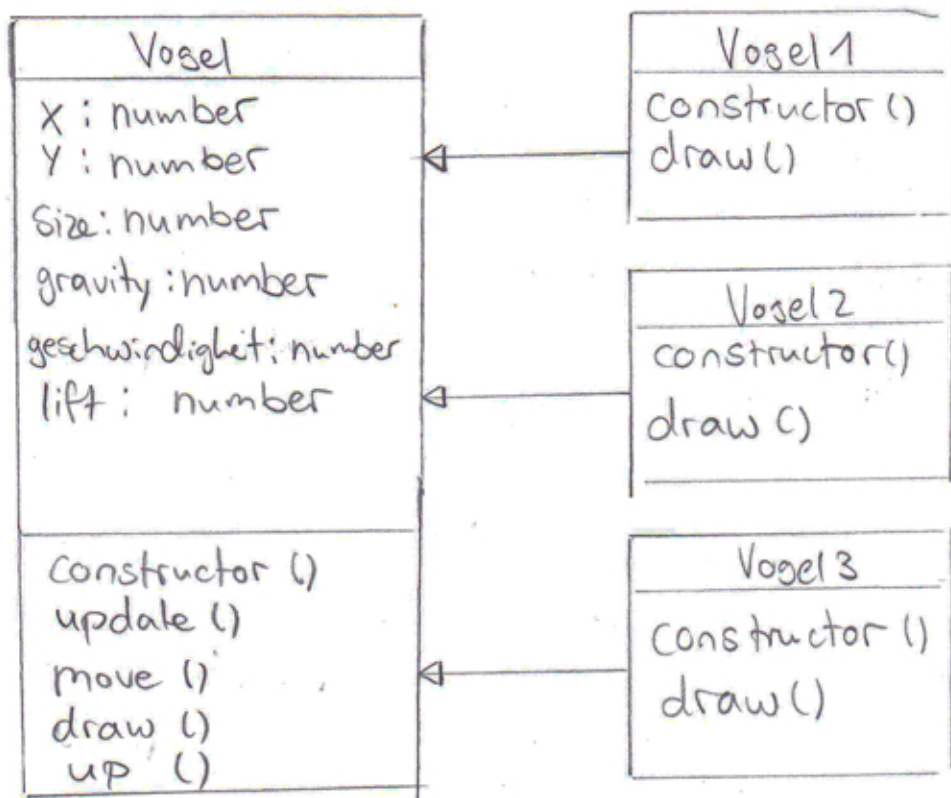 Vogel
X : number
Y : number
Size: number
gravity : number
geschwindigkeit: number
lift : number
constructor ()
update ()
move ()
draw ()
up ()
Vogel 1
constructor ()
draw ()
Vogel 2
constructor()
draw ()
Vogel 3
constructor ()
draw ()